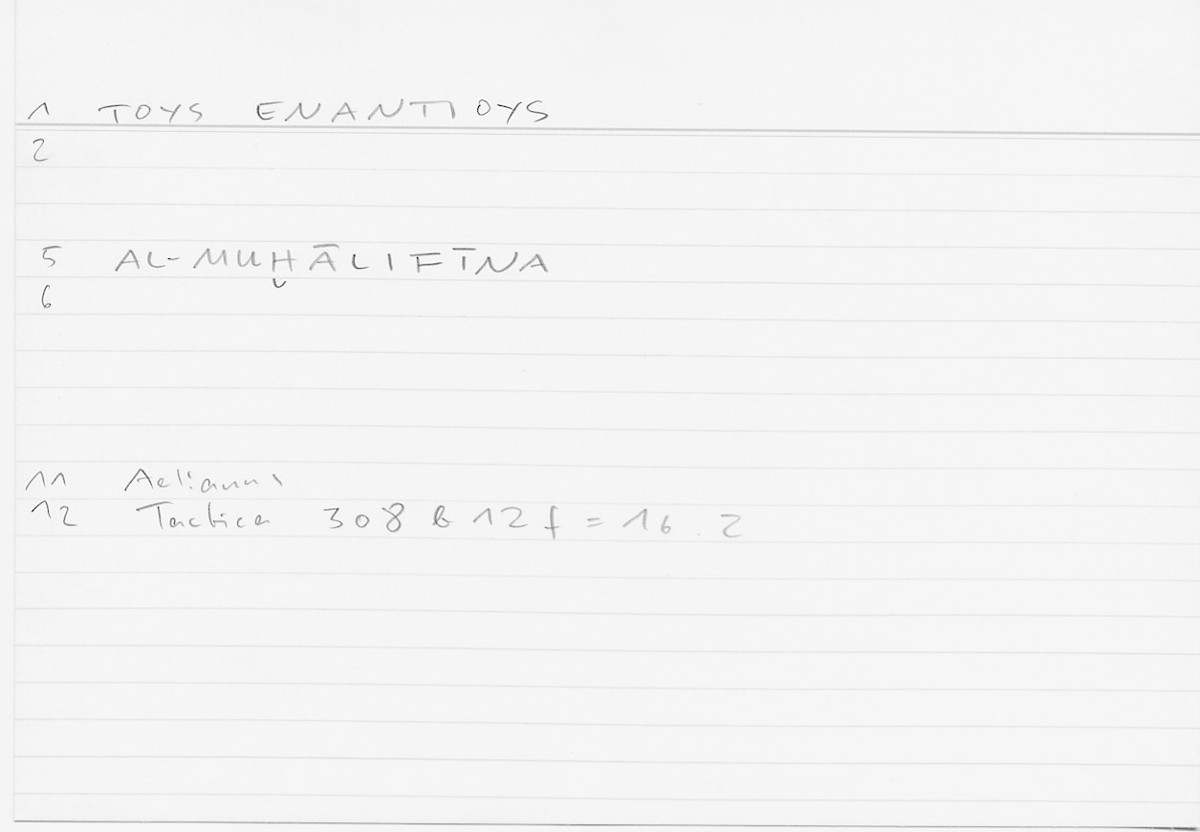 1 TOYS ENANTIOYS
2
5 AL-MUḪĀLIFĪNA
6
11 Aelianus
12 Tactica 308 b 12 f = 16.2